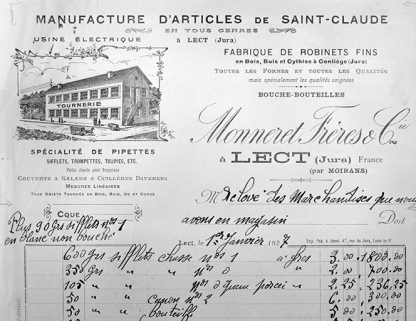 MANUFACTURE D'ARTICLES DE SAINT-CLAUDE
EN TOUS GENRES
USINE ÉLECTRIQUE
à LECT (Jura)
FABRIQUE DE ROBINETS FINS
en Bois, Buis et Cythise à Conliège (Jura)
TOUTES LES FORMES ET TOUTES LES QUALITÉS
mais spécialement les qualités soignées
BOUCHE-BOUTEILLES
TOURNERIE
Monneret Frères & Cie
à LECT (Jura) France
(par MOIRANS)
SPÉCIALITÉ DE PIPETTES
SIFFLETS, TROMPETTES, TOUPIES, ETC.
Petits Jouets pour Surprises
COUVERTS A SALADE & CUILLÈRES DIVERSES
MESURES LINÉAIRES
TOUS OBJETS TOURNÉS EN BOIS, BUIS, OS ET CORNE
M relevé des Marchandises que nous
avons en magasin
Doit
Plus 90 grs sifflets nos 1
en blanc non bouché
Lect, le 1er Janvier 1927
600 grs sifflets chasse no 1 à frcs 3.00 1800.00
350 grs " " no 0 " 2. " 700.00
105 " " no 2.25 236.25
50 " no 2 6. 300.00
50 " 5. 250.00